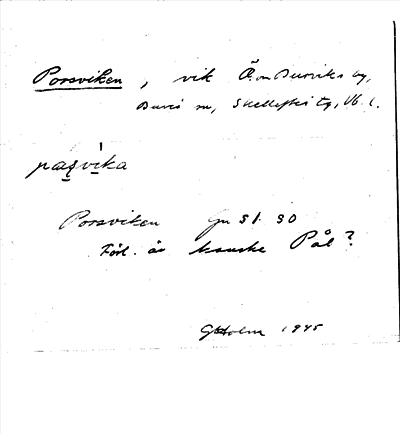 Porsviken, vik Ö. om Bureviks by,
Bureå sn, Skellefteå tg, Vb. l.
pɑsvika
Porsviken Gn 51. 30
Förl. är kanske Pål?
GHolm 1945